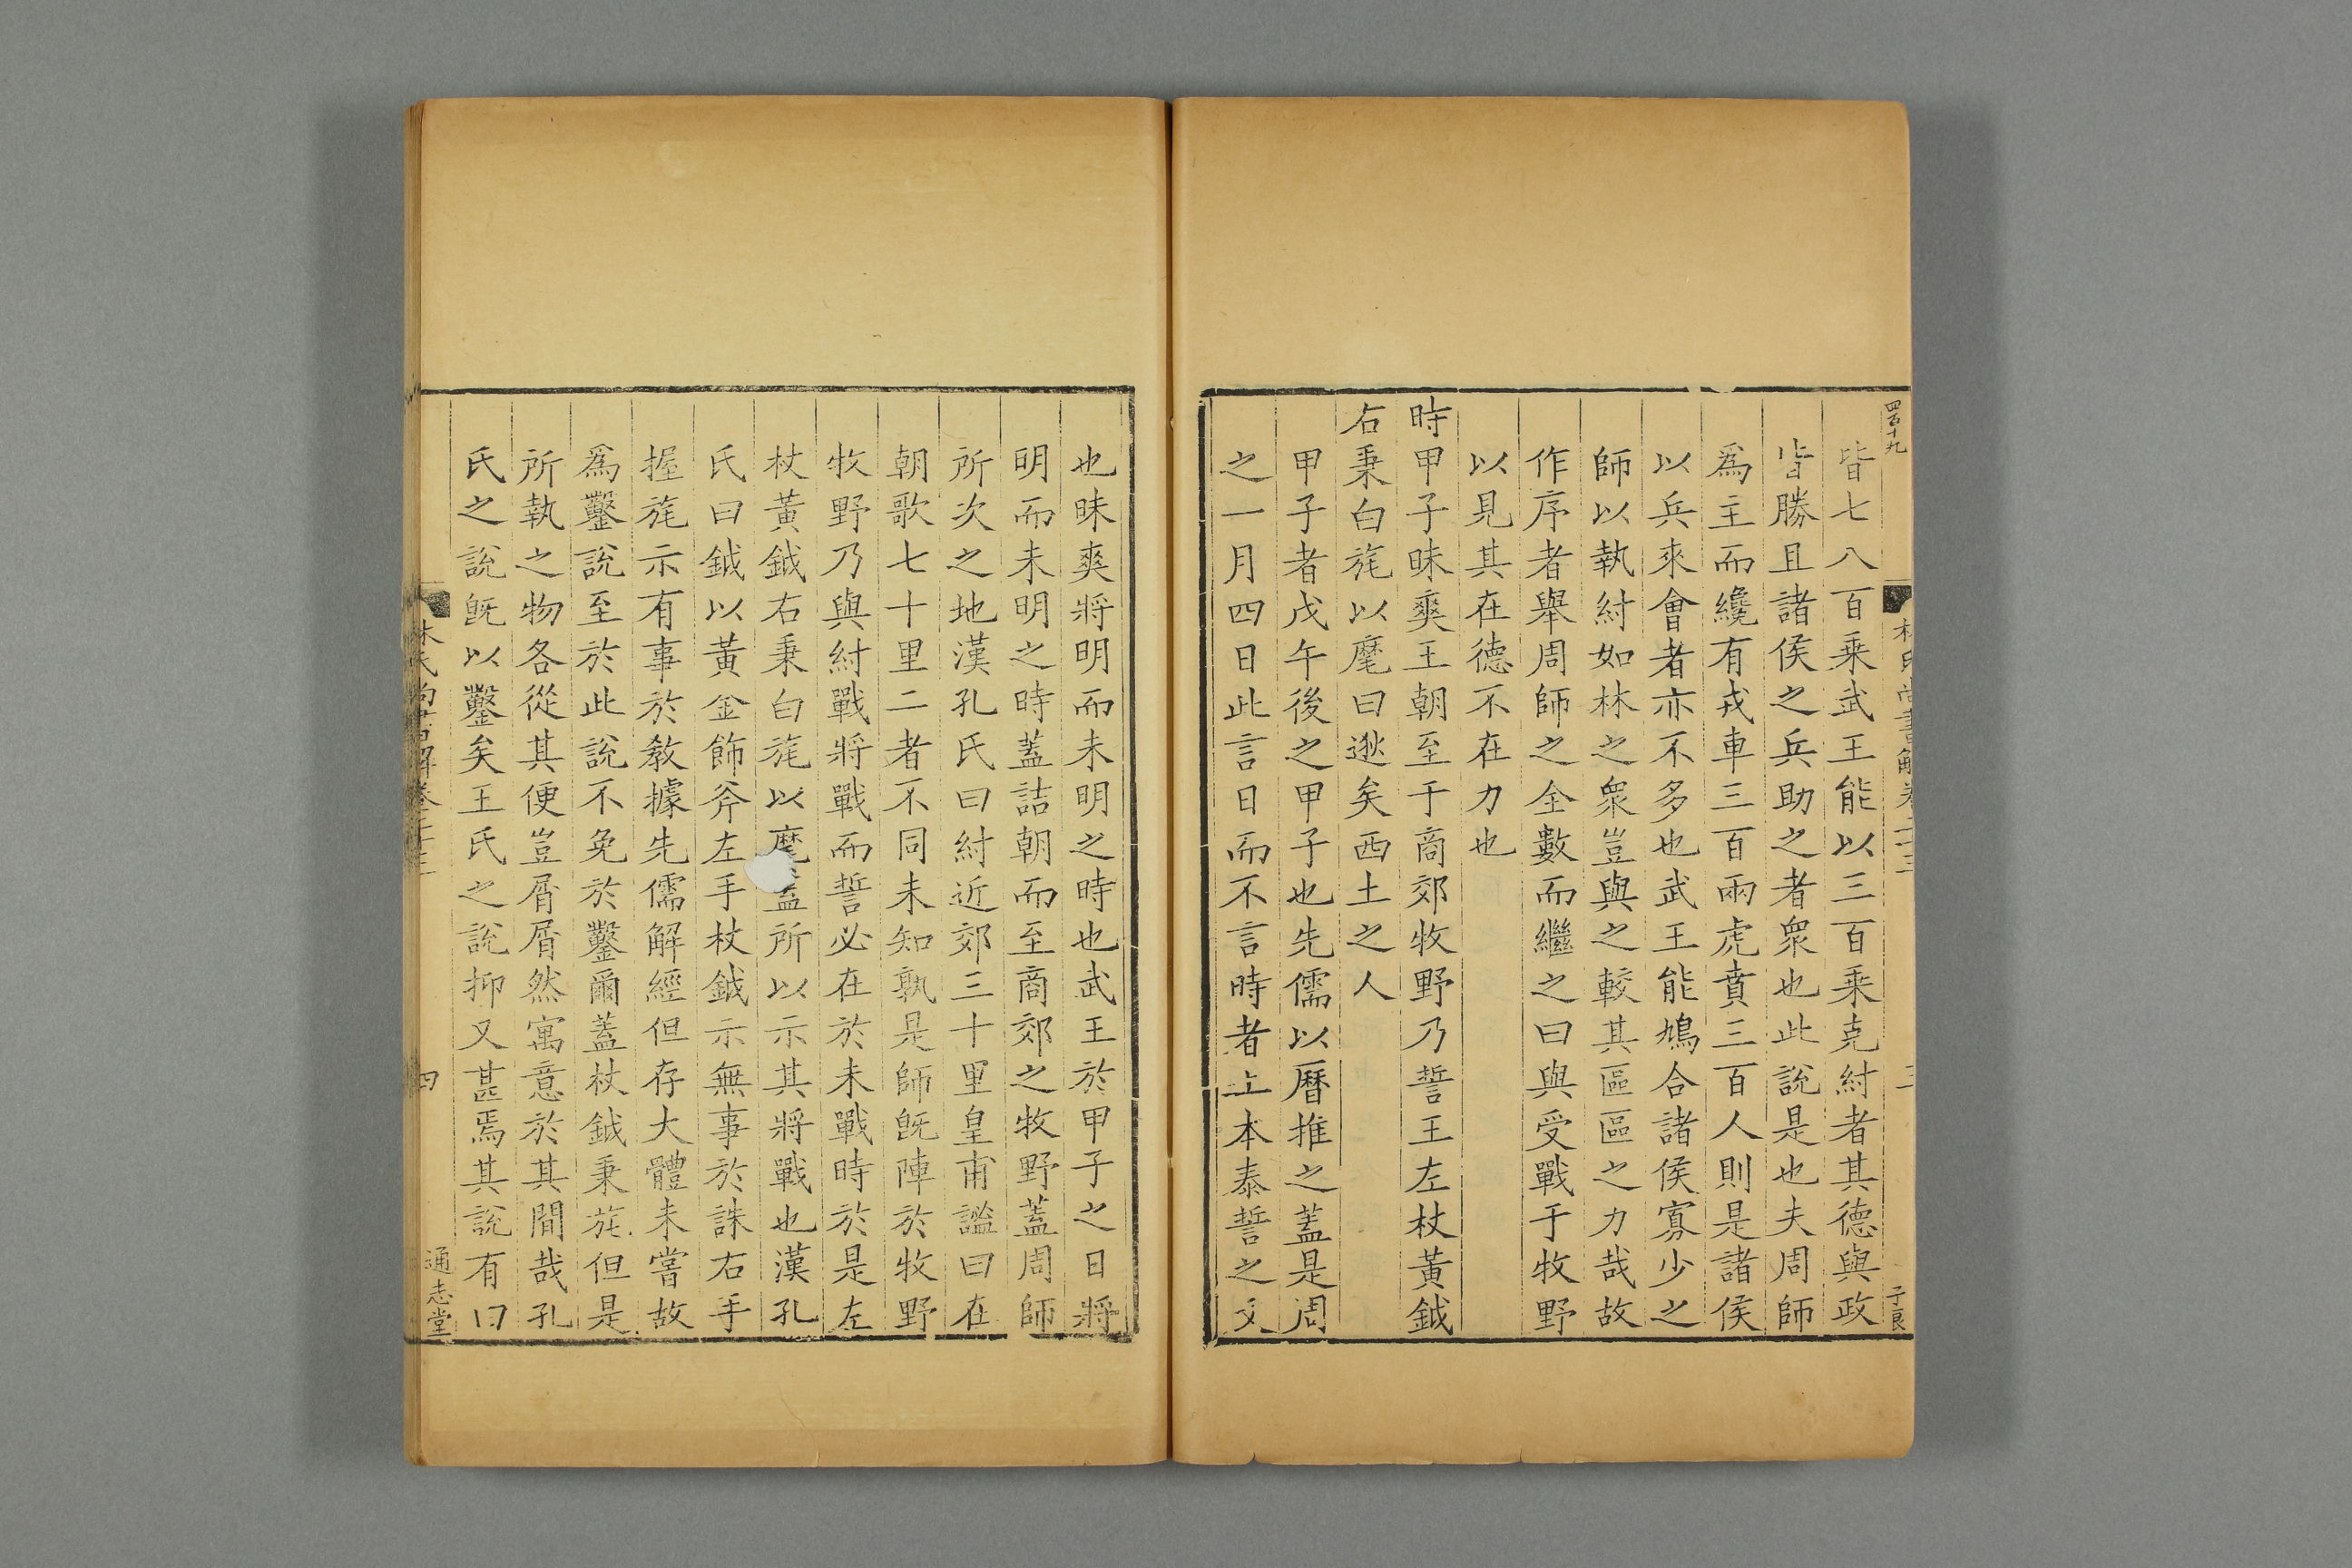 四百十九
皆七八百乘武王能以三百乘克紂者其德與政
皆勝且諸侯之兵助之者衆也此說是也夫周師
爲主而纔有戎車三百兩虎賁三百人則是諸侯
以兵來會者亦不多也武王能鳩合諸侯寡少之
師以執紂如林之衆豈與之較其區區之力哉故
作序者舉周師之全數而繼之曰與受戰于牧野
以見其在德不在力也
時甲子昧爽王朝至于商郊牧野乃誓王左杖黃鉞
右秉白旄以麾曰逖矣西土之人
甲子者戊午後之甲子也先儒以曆推之蓋是周
之一月四日此言日而不言時者上本泰誓之文
也昧爽將明而未明之時也武王於甲子之日將
明而未明之時蓋詰朝而至商郊之牧野蓋周師
所次之地漢孔氏曰紂近郊三十里皇甫謐曰在
朝歌七十里二者不同未知孰是師旣陣於牧野
牧野乃與紂戰將戰而誓必在於未戰時於是左
杖黃鉞右秉白旄以麾蓋所以示其將戰也漢孔
氏曰鉞以黃金飾斧左手杖鉞示無事於誅右手
握旄示有事於敎據先儒解經但存大體未嘗故
爲鑿說至於此說不免於鑿爾蓋杖鉞秉旄但是
所執之物各從其便豈屑屑然寓意於其間哉孔
氏之說旣以鑿矣王氏之說抑又甚焉其說有曰
林氏尚書解卷二十三
四
通志堂